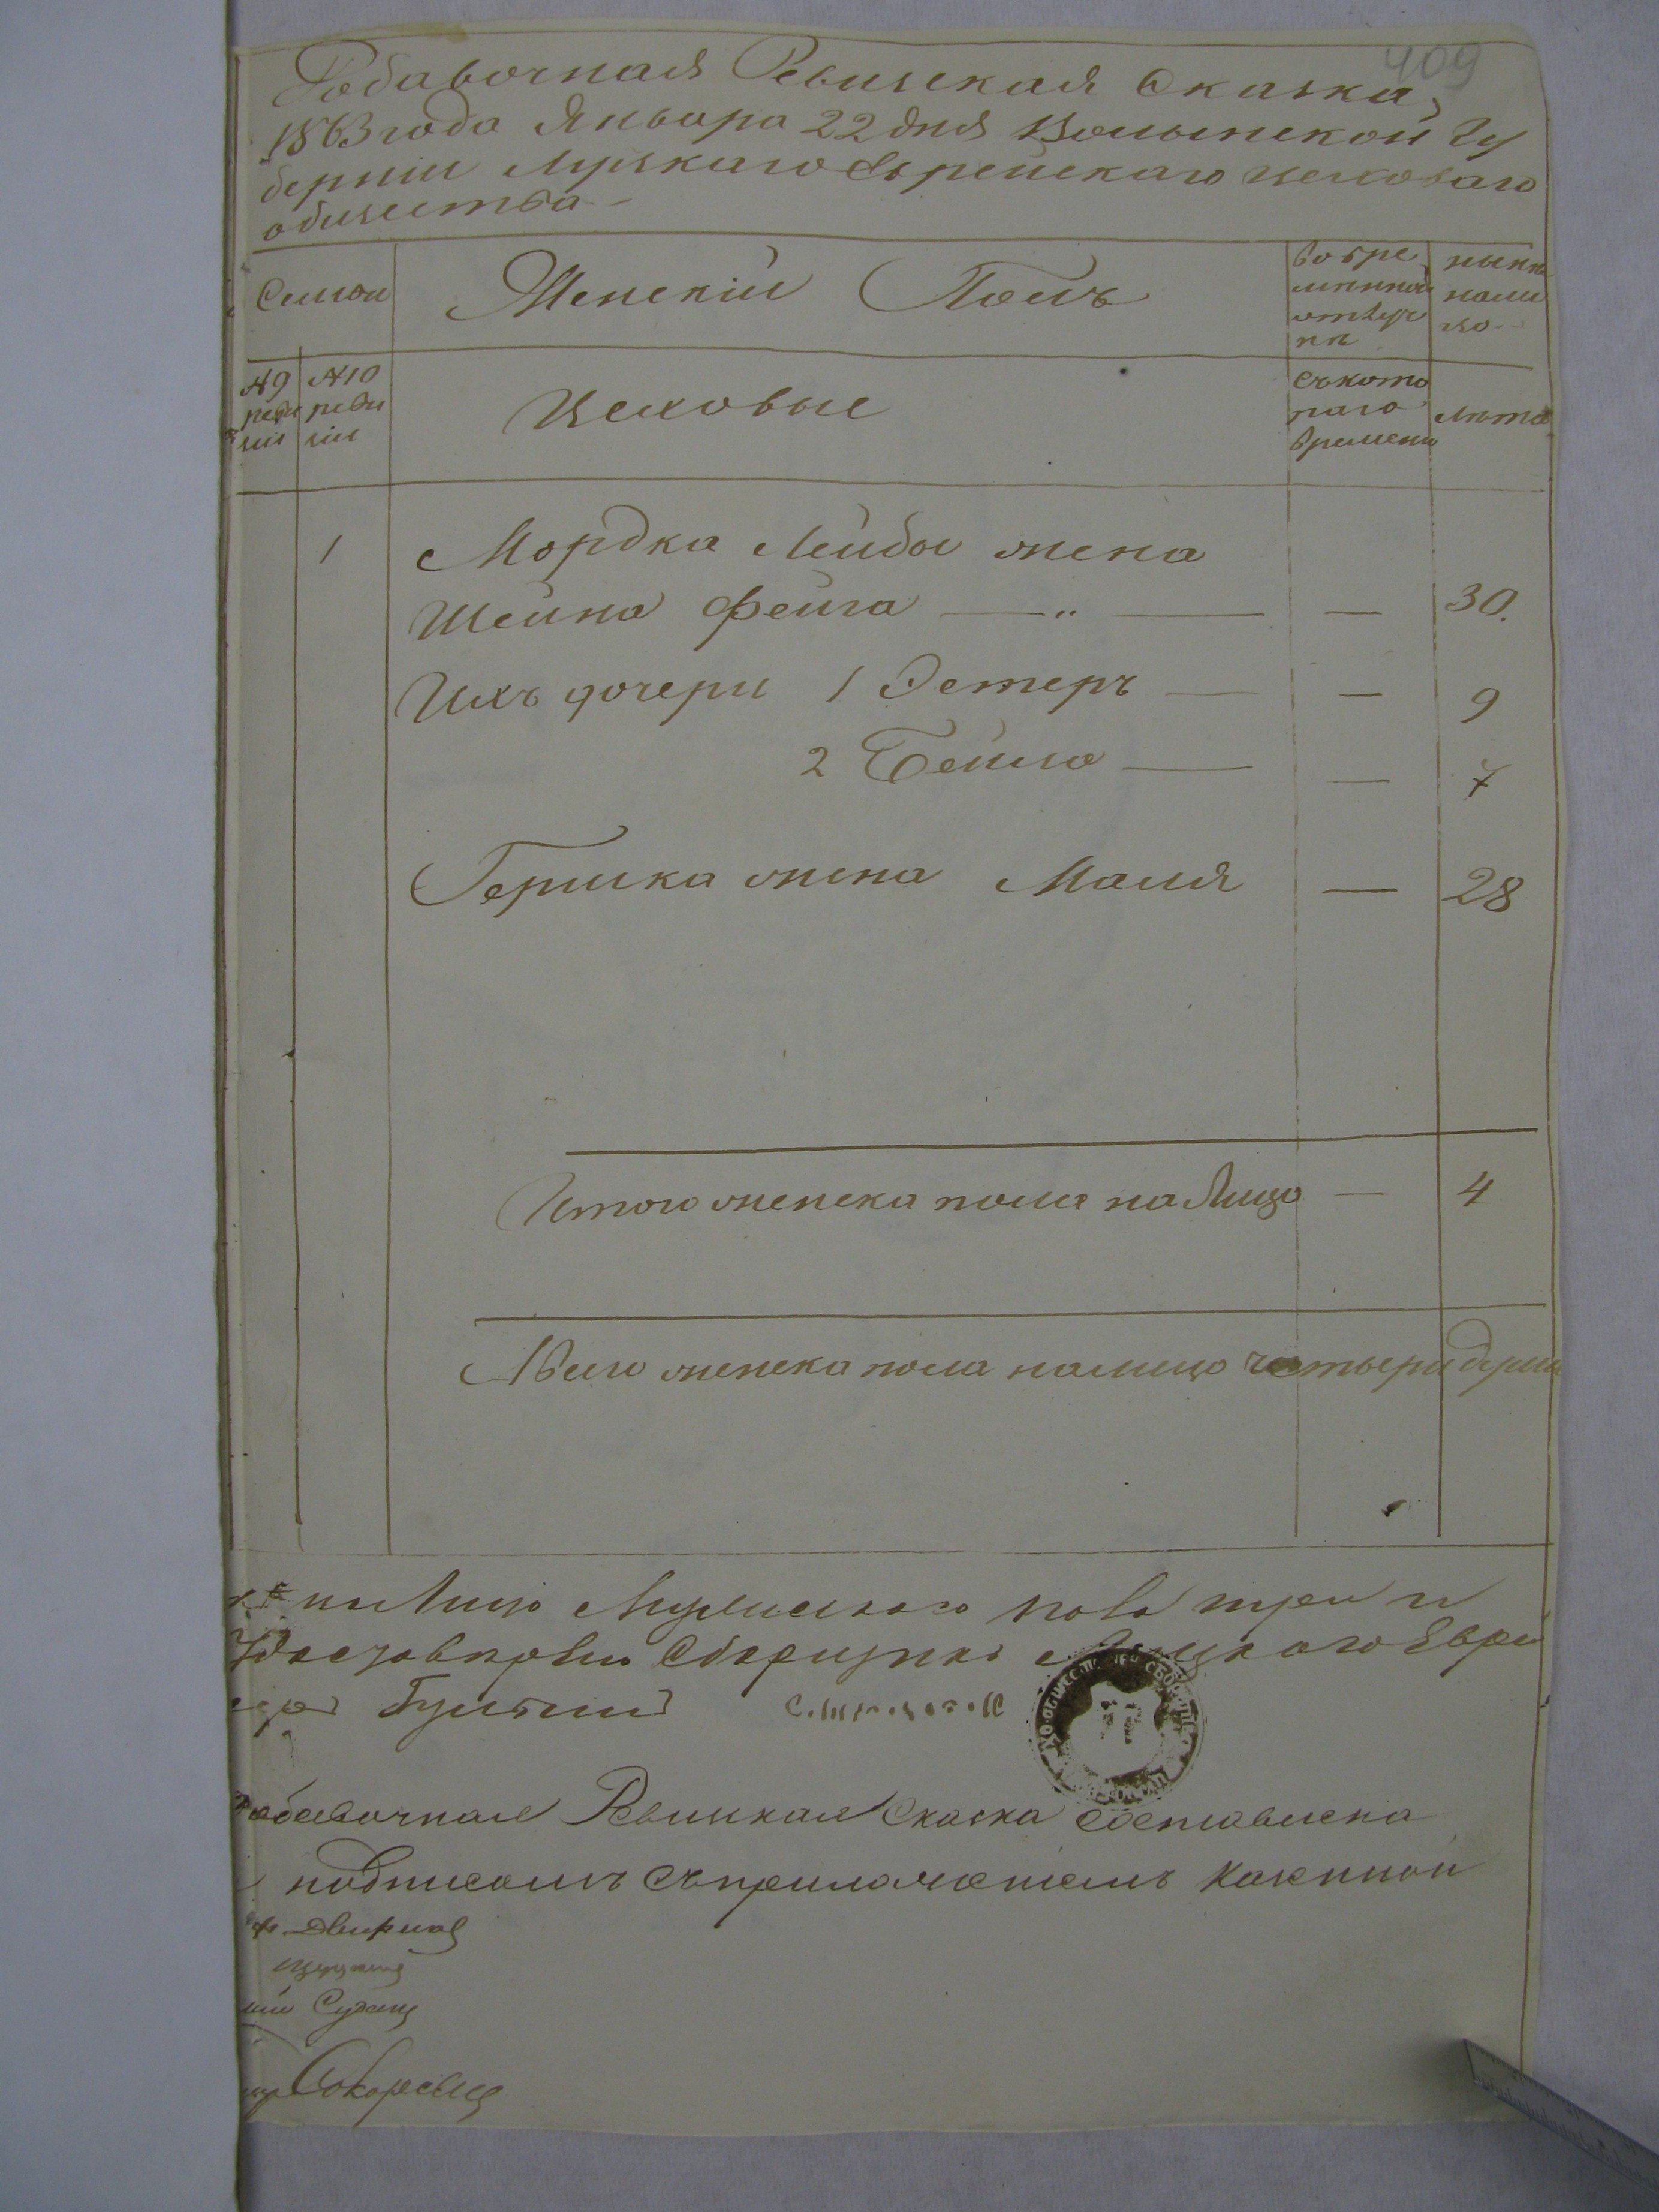 409
Добавочная Ревизская Сказка,
1863 года Января 22 дня Волынской Гу
берніи Луцкаго Еврейскаго цеховаго
общества
Семьи
Женскій Полъ
во вре
менной
отлуч
кѣ
нынѣ
нали
цо
№ 9
реви
зіи
№ 10
реви
зіи
Цеховые
съ кото
раго
времени
лѣта
1 Мордка Лейбы жена
Шейна Фейга — „ — — 30.
Ихъ дочери 1 Эстеръ — — 9
2 Бейла — — 7
Гершка жена Маля — 28
Итого женска пола на лицо — 4
Всего женска пола налицо четыри души
на лицо Мужескаго пола три и
Сборщикъ Луцкаго Евре
добавочная Ревизкая Сказка составлена
подписомъ съ приложеніемъ казенной